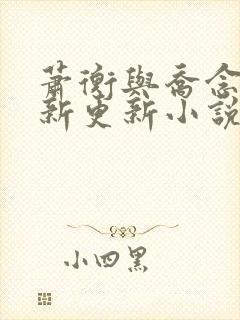 蕭衡與喬念
新更新小說
小四黑